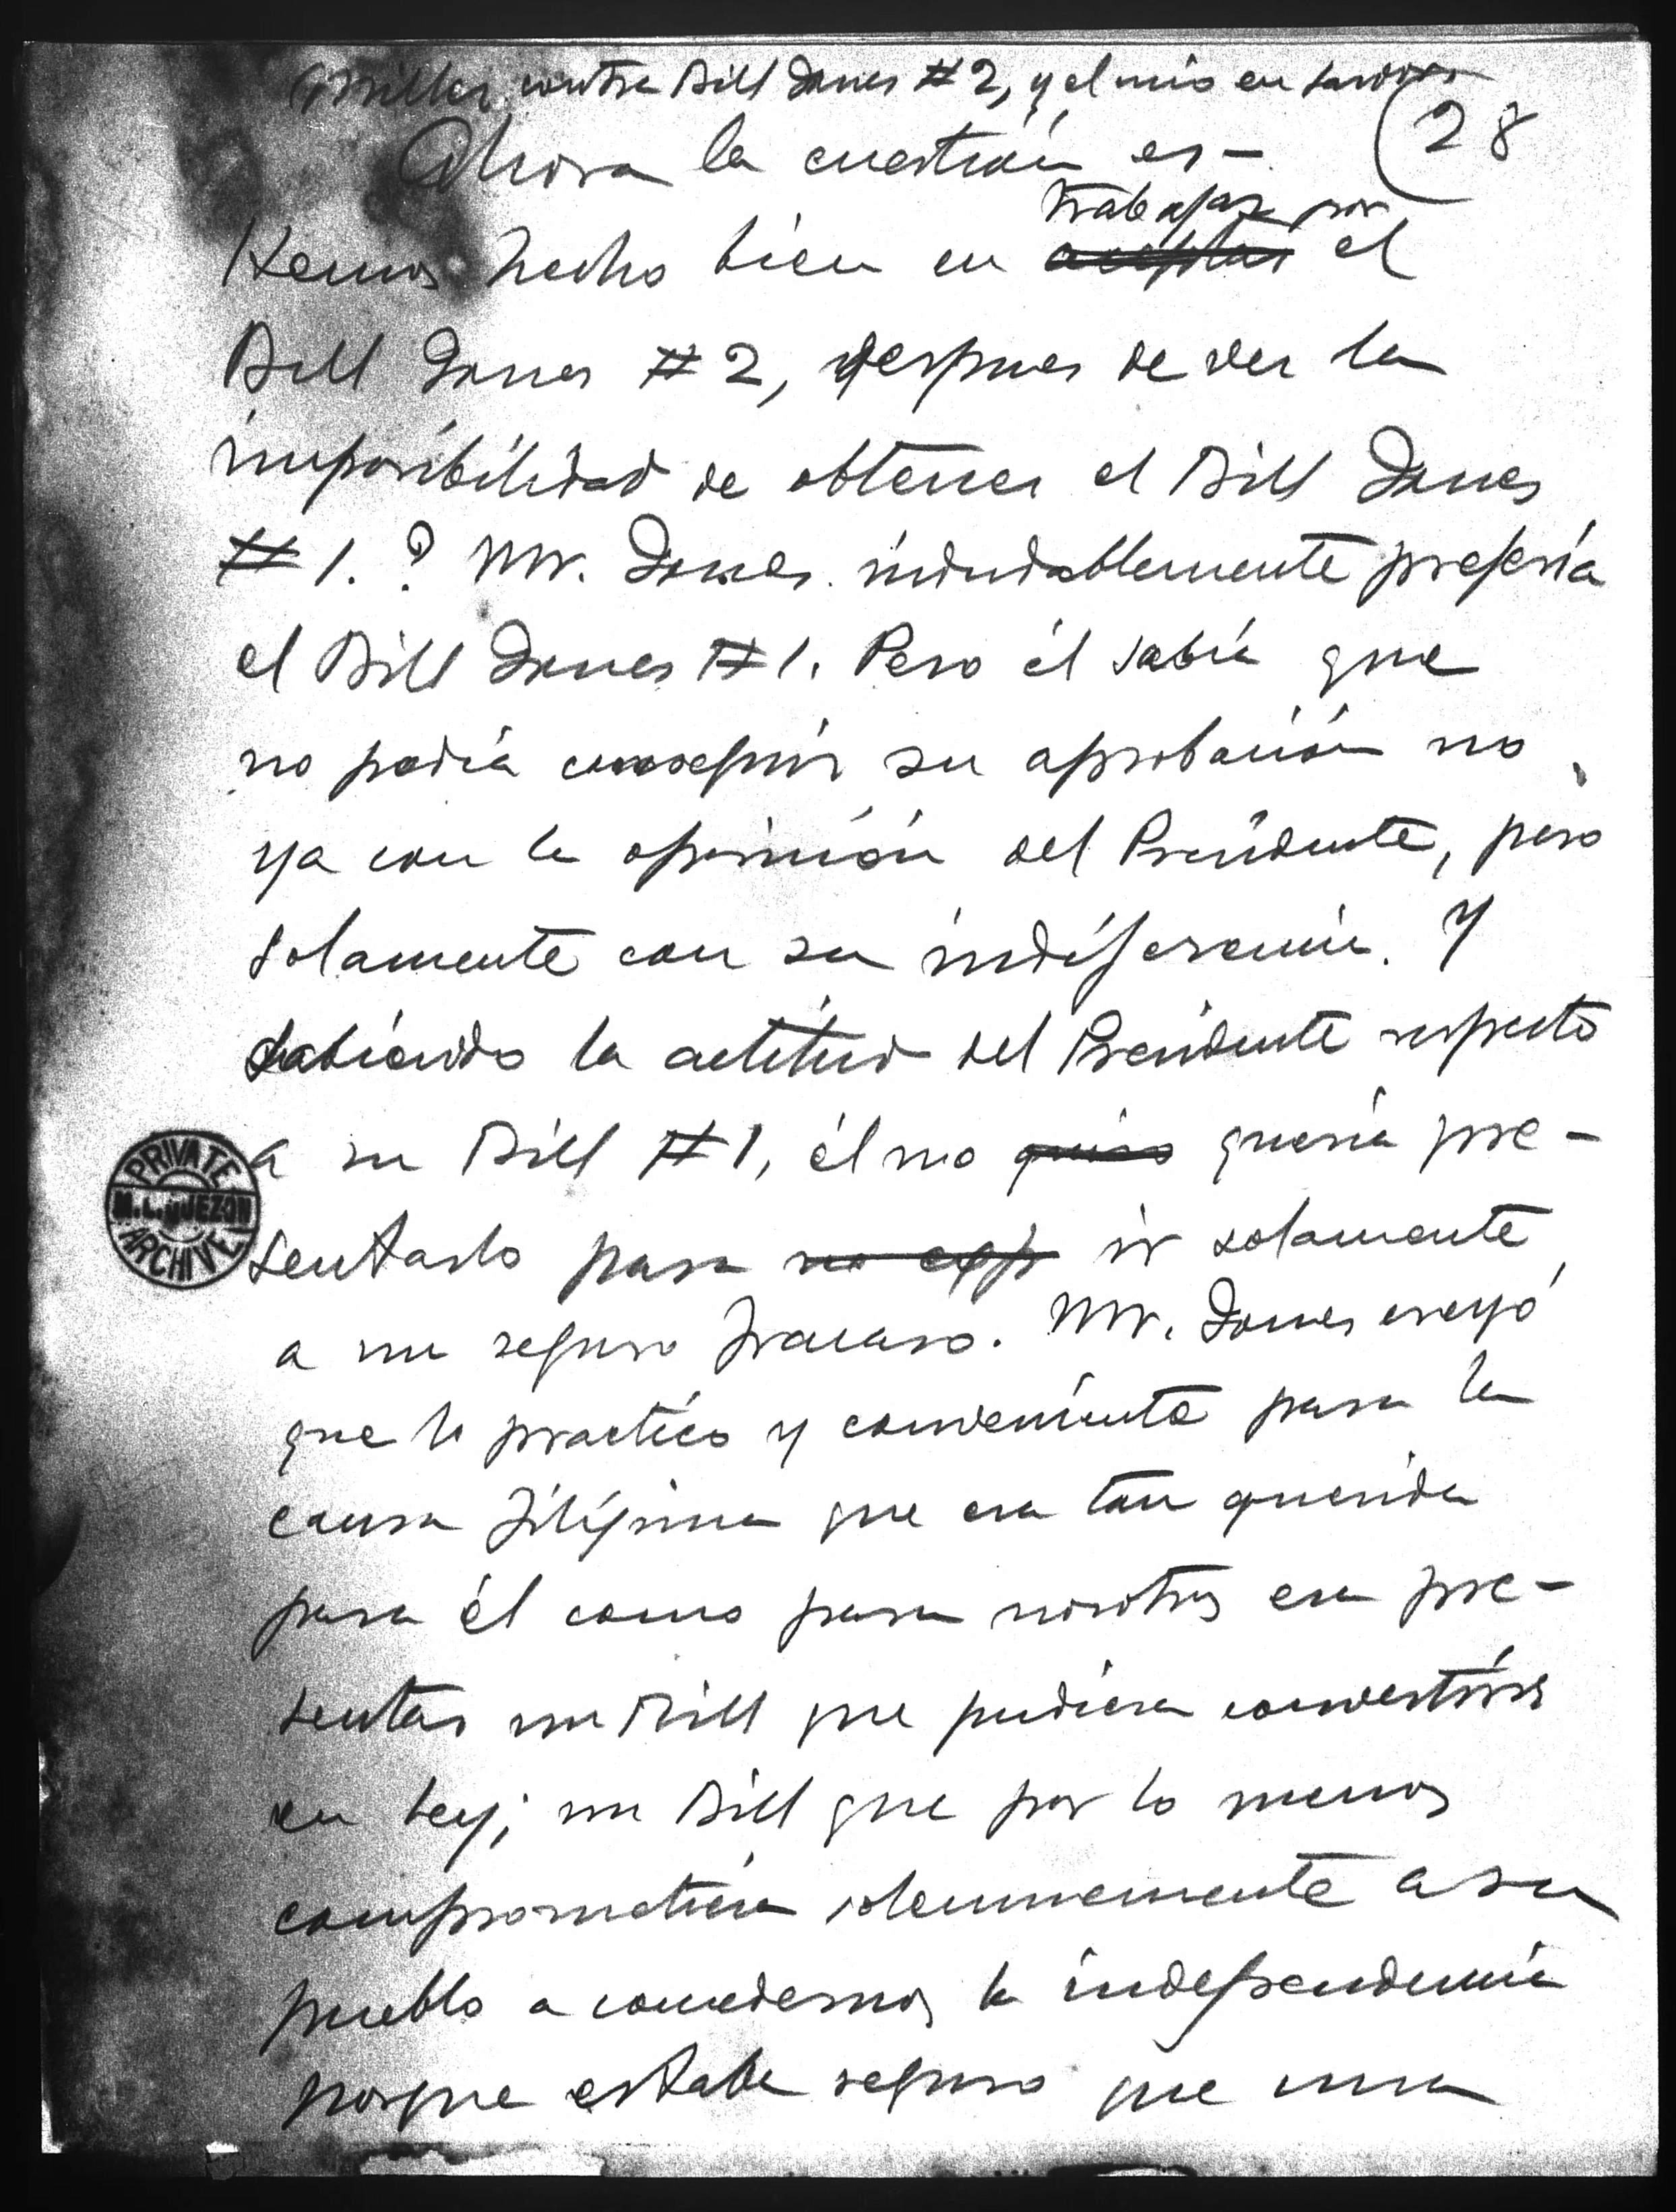 Miller contra Bill Jones #2, y el mio en favor
(28
Ahora la cuestión es-
trabajar por
Hemos hecho bien en aceptar el
Bill Jones #2, despues de ver la
imposibilidad de obtener el Bill Jones
#1.? Mr. Jones indudablemente prefería
el Bill Jones #1. Pero él sabía que
no podía conseguir su aprobación no
ya con la oposición del Presidente, pero
solamente con su indiferencia. Y
sabiendo la actitud del Presidente respecto
a su Bill #1, él no quiso quería pre-
sentarlo para no exp ir solamente
a un seguro fracaso. Mr. Jones creyó
que lo practico y conveniente para la
causa Filipina que era tan querida
para él como para nosotros era pre-
sentar un Bill que pudiera convertirse
en ley; un Bill que por lo menos
comprometiera solemnemente a su
pueblo a concedernos la independencia
porque estaba seguro que una
PRIVATE
M.L. QUEZON
ARCHIVE